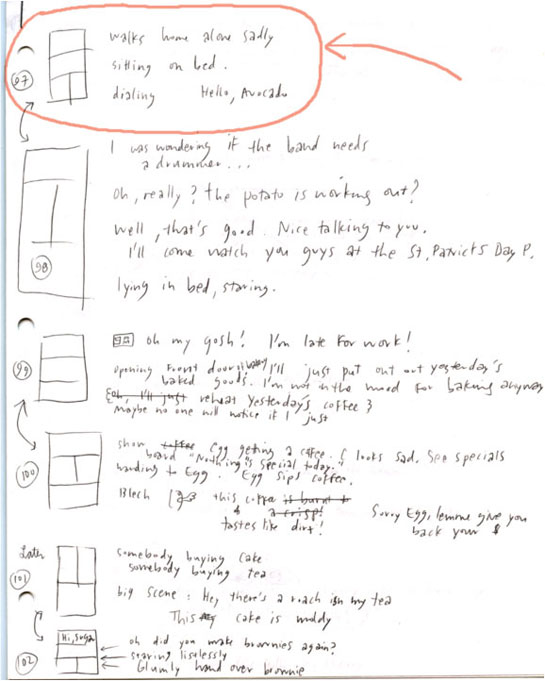 97
walks home alone sadly
sitting on bed.
dialing Hello, Avocado
I was wondering if the band needs
a drummer...
Oh, really? The potato is working out?
98
Well, that's good. Nice talking to you.
I'll come watch you guys at the St. Patrick's Day P.
lying in bed, staring.
99
Oh my gosh! I'm late for work!
opening front door I'll just put out out yesterday's
baked goods. I'm not in the mood for baking anyway
Eoh, I'll just reheat yesterday's coffee }
Maybe no one will notice if I just
100
show coffee Egg getting a coffee. C looks sad. See specials
board "Nothing is special today."
handing to Egg. Egg sips coffee.
Blech this coffee is burnt to
a crisp!
tastes like dirt!
Sorry Egg, lemme give you
back your $
Later
101
somebody buying cake
somebody buying tea
big scene: Hey there's a roach in my tea
This cake is moldy
102
Hi, Sugar
oh did you make brownies again?
staring listlessly
Glumly hand over brownie